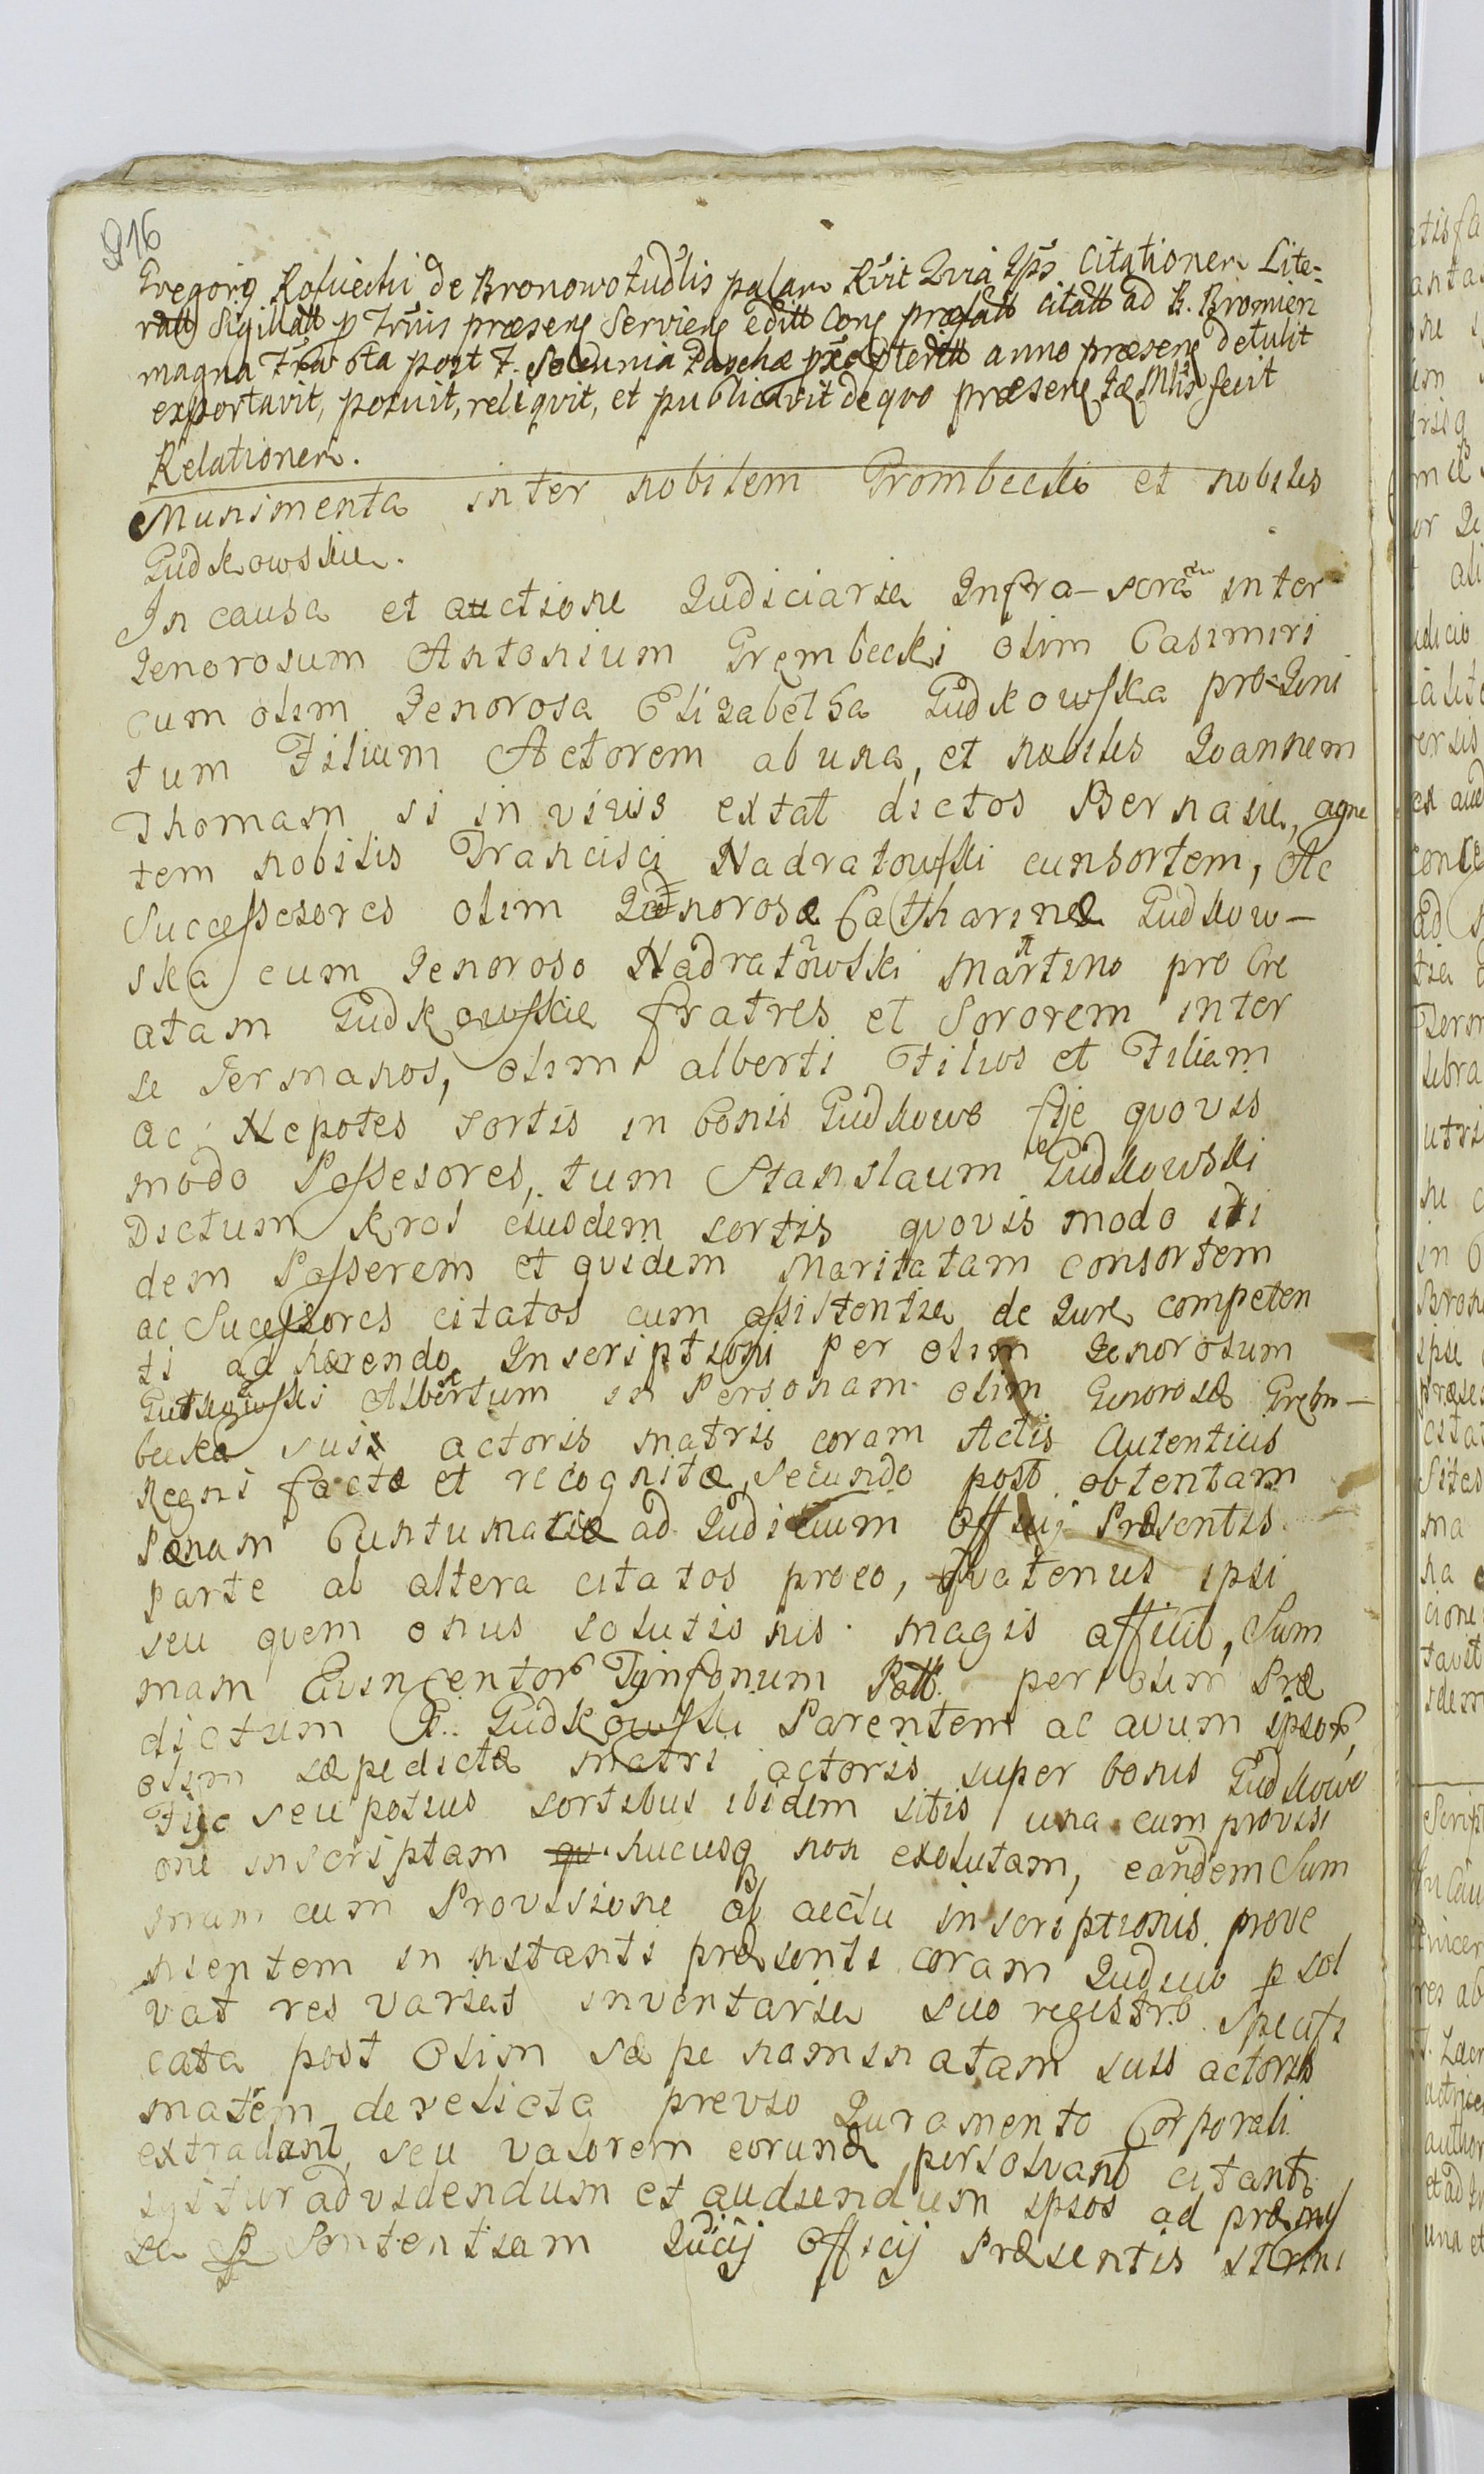 916
Gregorius Kosucchi de Bronowo Ludlis palam Rvit Qvia Ips Citationem Lite-
ratt Sigillatt p præsens Serviens editt præfatt citatt ad B. Bromierz
magna post F. Paschæ anno præsens detulit
exportavit, posuit, reliqvit, et publicavit de qvo præsens fecit
Relationem.
Munimenta inter nobilem Grombecki et nobiles
Gudkowskie.
In causa et auctione Judiciaria Infra-scrã inter
Generosum Antonium Grembecki olim Casimiri
cum olim Generosa Elizabetha Gudkowska pro-Geni
tum Filium Actorem ab una, et nobiles Joannem
Thomam si in viuis extat dictos Bernasie, agne
tem nobilis Francisci Nadratowski cunsortem, Ac
Successesores olim Generosæ Catharinæ Gudkow-
ska cum Generoso Nadratowski Martino pro Cre
atam Gudkowskie fratres et Sororem inter
se Germanos, olim alberti Filios et Filiam
ac Nepotes sortis in bonis Gudkowo quovis
modo Possesores, tum Stanslaum Gudkowski
Dictum Kros eiusdem sortis qvovis modo iti
dem Posserem et qvidem Maritatam consortem
ac Sucessores citatos cum assistentia de Jure competen
ti ad hærendo Inscriptioni per olim Generosum
Gutkowski Albertum in Personam olim Generosæ Grebm-
becka suis actoris matris coram Actis Autenticis
Regni factæ et recognitæ, secundo post obtentam
Pænam Cuntumaciæ ad Judicium Officij Præsentis
parte ab altera citatos proeo, Qvatenus ipsi
seu qvem onus solutionis magis afficit, Sum
mam Qvincentor Tynfonum Pott. per olim Præ
dictum G. Gudkowski Parentem ac avum ipsor
olim sæpedictæ matri actoris super bonis Gudkowo
seu potius sortibus ibidem sitis una cum provisi
one inscriptam qu hucusq non exolutam, eandem Sum
mam cum Provisione ab actu inscriptionis prove
nientem in nstanti præsenti coram Judicio p sol
vat res varias inventaria suo registro specifi
cata post Olim sæpe naminatam suis actoris
matem derelicta previo Juramento Corporali
extradant, seu valorem eorund persolvant citantr
igitur ad videndum et audiendum ipsos ad præmis
sa Sententiam Jucij Officij Præsentis